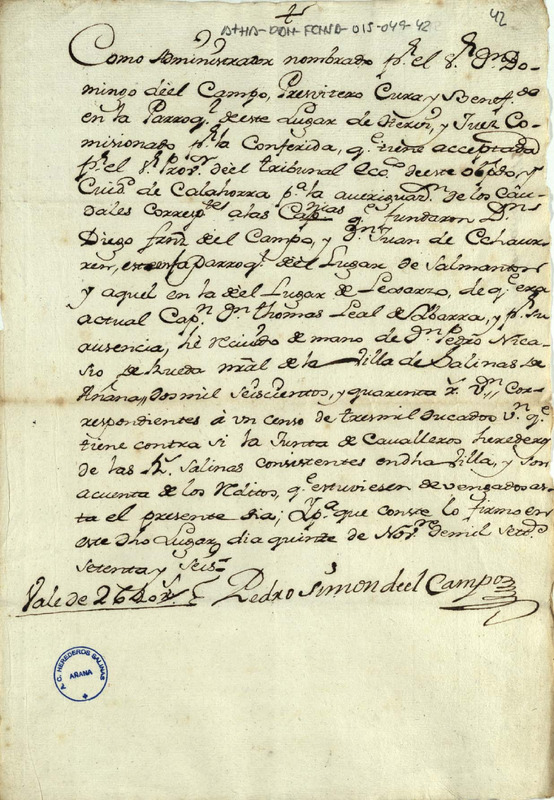 42
ATHA-DAH-FCHSA-015-049-42
Como Administrador nombrado pr. el Sr. Dn. Do-
mingo del Campo, Presvitero Cura, y Benefdo
en la Parroql. de este Lugar de y Juez Co-
misionado pr. la Conferida, qe. tiene acceptada
pr. el Sr. Provor. del tribunal ecco. de este obpdo, y
Ciudd. de Calahorra pa. la averiguazn. de los Cau-
dales Corresptes a las Capnias qe. fundaron Dns
Diego frnz del Campo, y Dn. Juan de Echaur-
ren, este en la parroql. del Lugar de Salmanton
y aquel en la del Lugar de Lezarzo, de qe. era
actual Capn. Dn. Thomas Leal de Ybarra, y pr. su
ausencia, he recivido de mano de Dn. Pedro Nica-
sio de Rueda nral de la Villa de Salinas de
Añana, dos mil seiscientos, y quarenta rs. vn., Cor-
respondientes à un censo de tres mil Ducados vn. qe.
tiene contra si la Junta de Cavalleros herederos
de las Rs. Salinas consistentes en dha Villa, y son
a cuenta de los Réditos, qe. estuviesen devengados as-
ta el presente dia; Y pa. que conste lo firmo en
este dho Lugar dia quinze de Nove. de mil setezos
setenta y seis
Vale de 2640 rs. Pedro Simon del Campo
P. C. HEREDEROS SALINAS
AÑANA